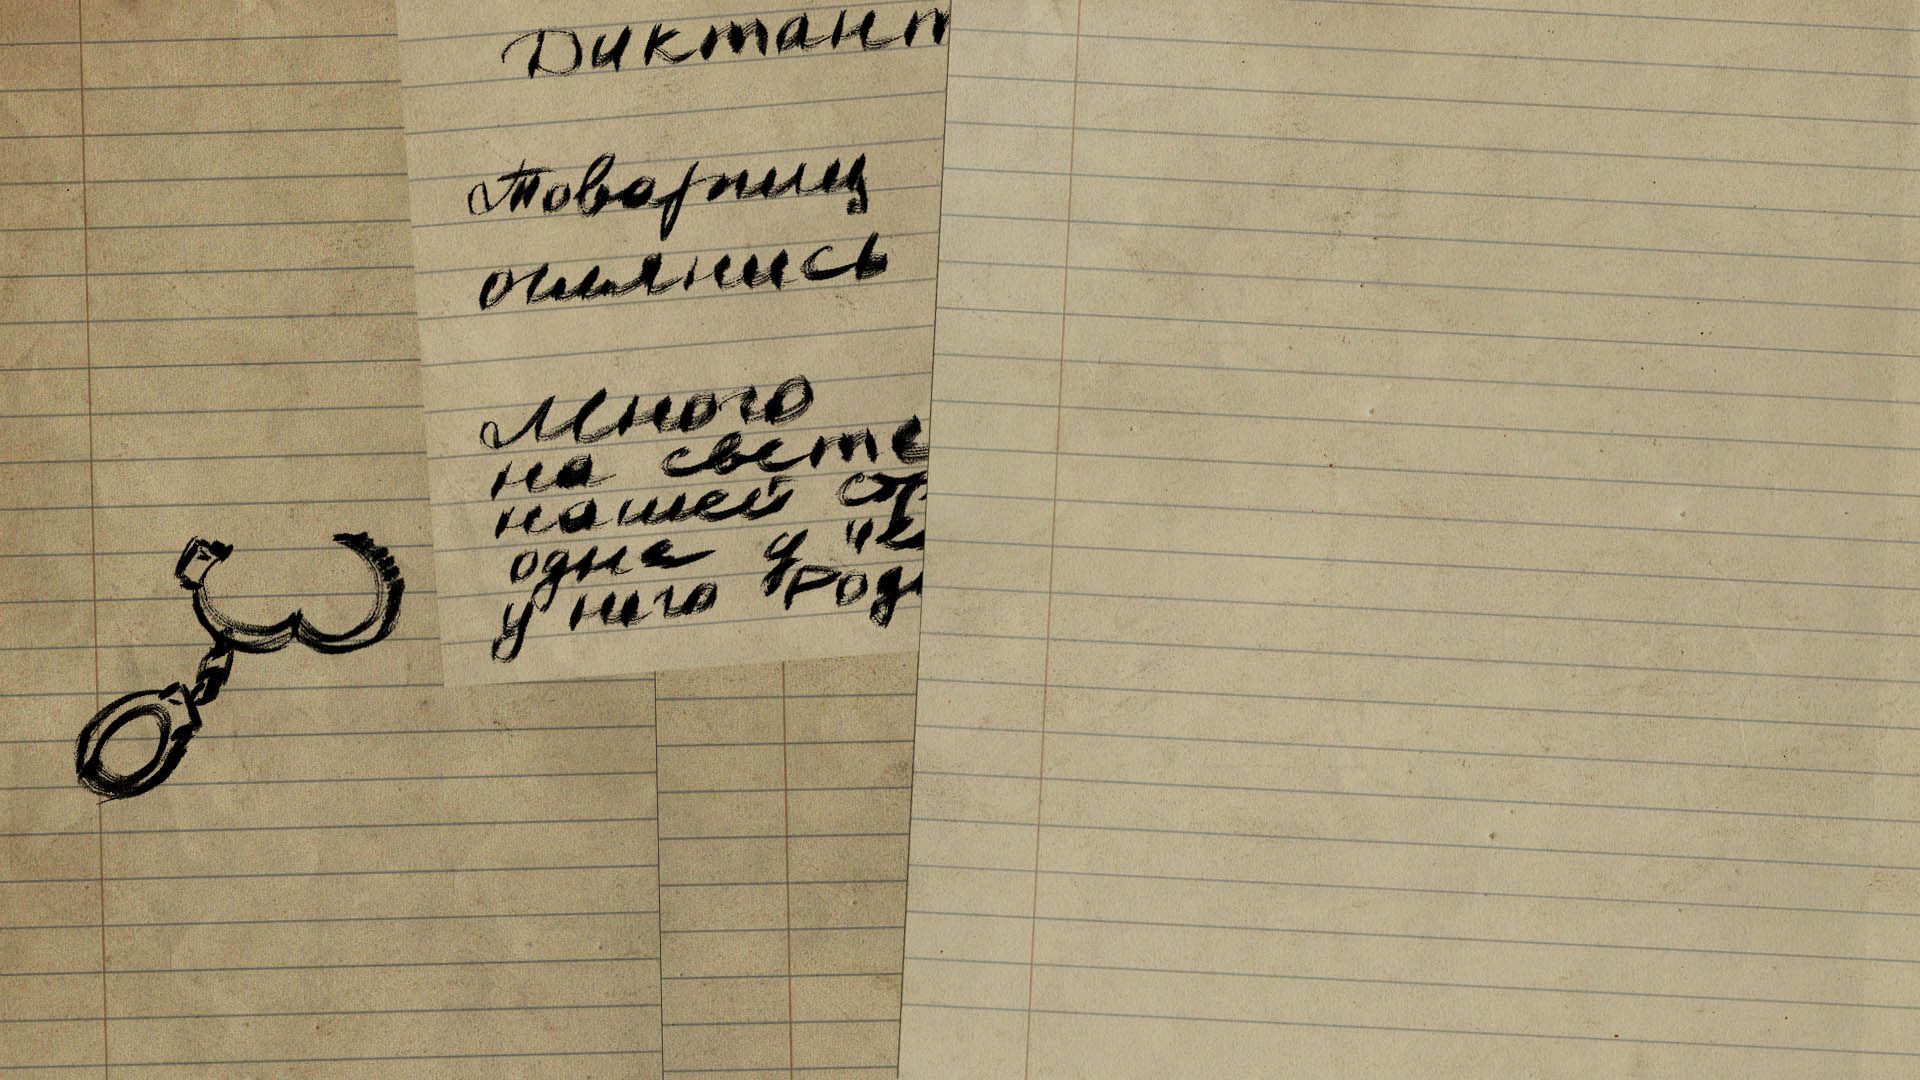 Диктант
Товарищ
оглянись
Много
на свете
нашей
одна у
у него Род